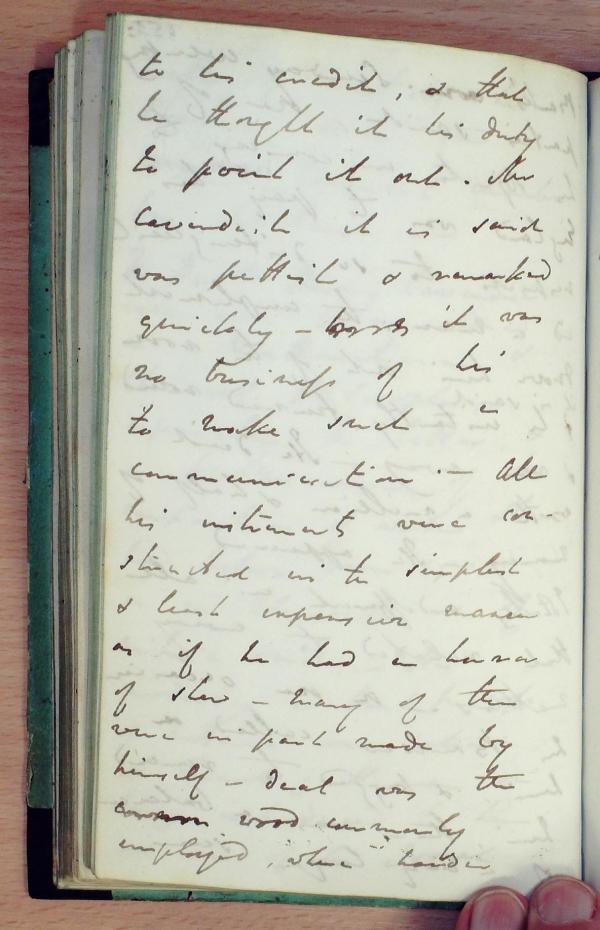 to his credit, & that
he thought it his duty
to point it out. Mr
Cavendish it is said
was pettish & remarked
quickly – it was
no business of his
to make such a
communication – All
his instruments were con-
structed in the simplest
& least expensive manner
as if he had a horror
of shew – many of them
were in part made by
himself – deal was the
common wood commonly
employed, where harder